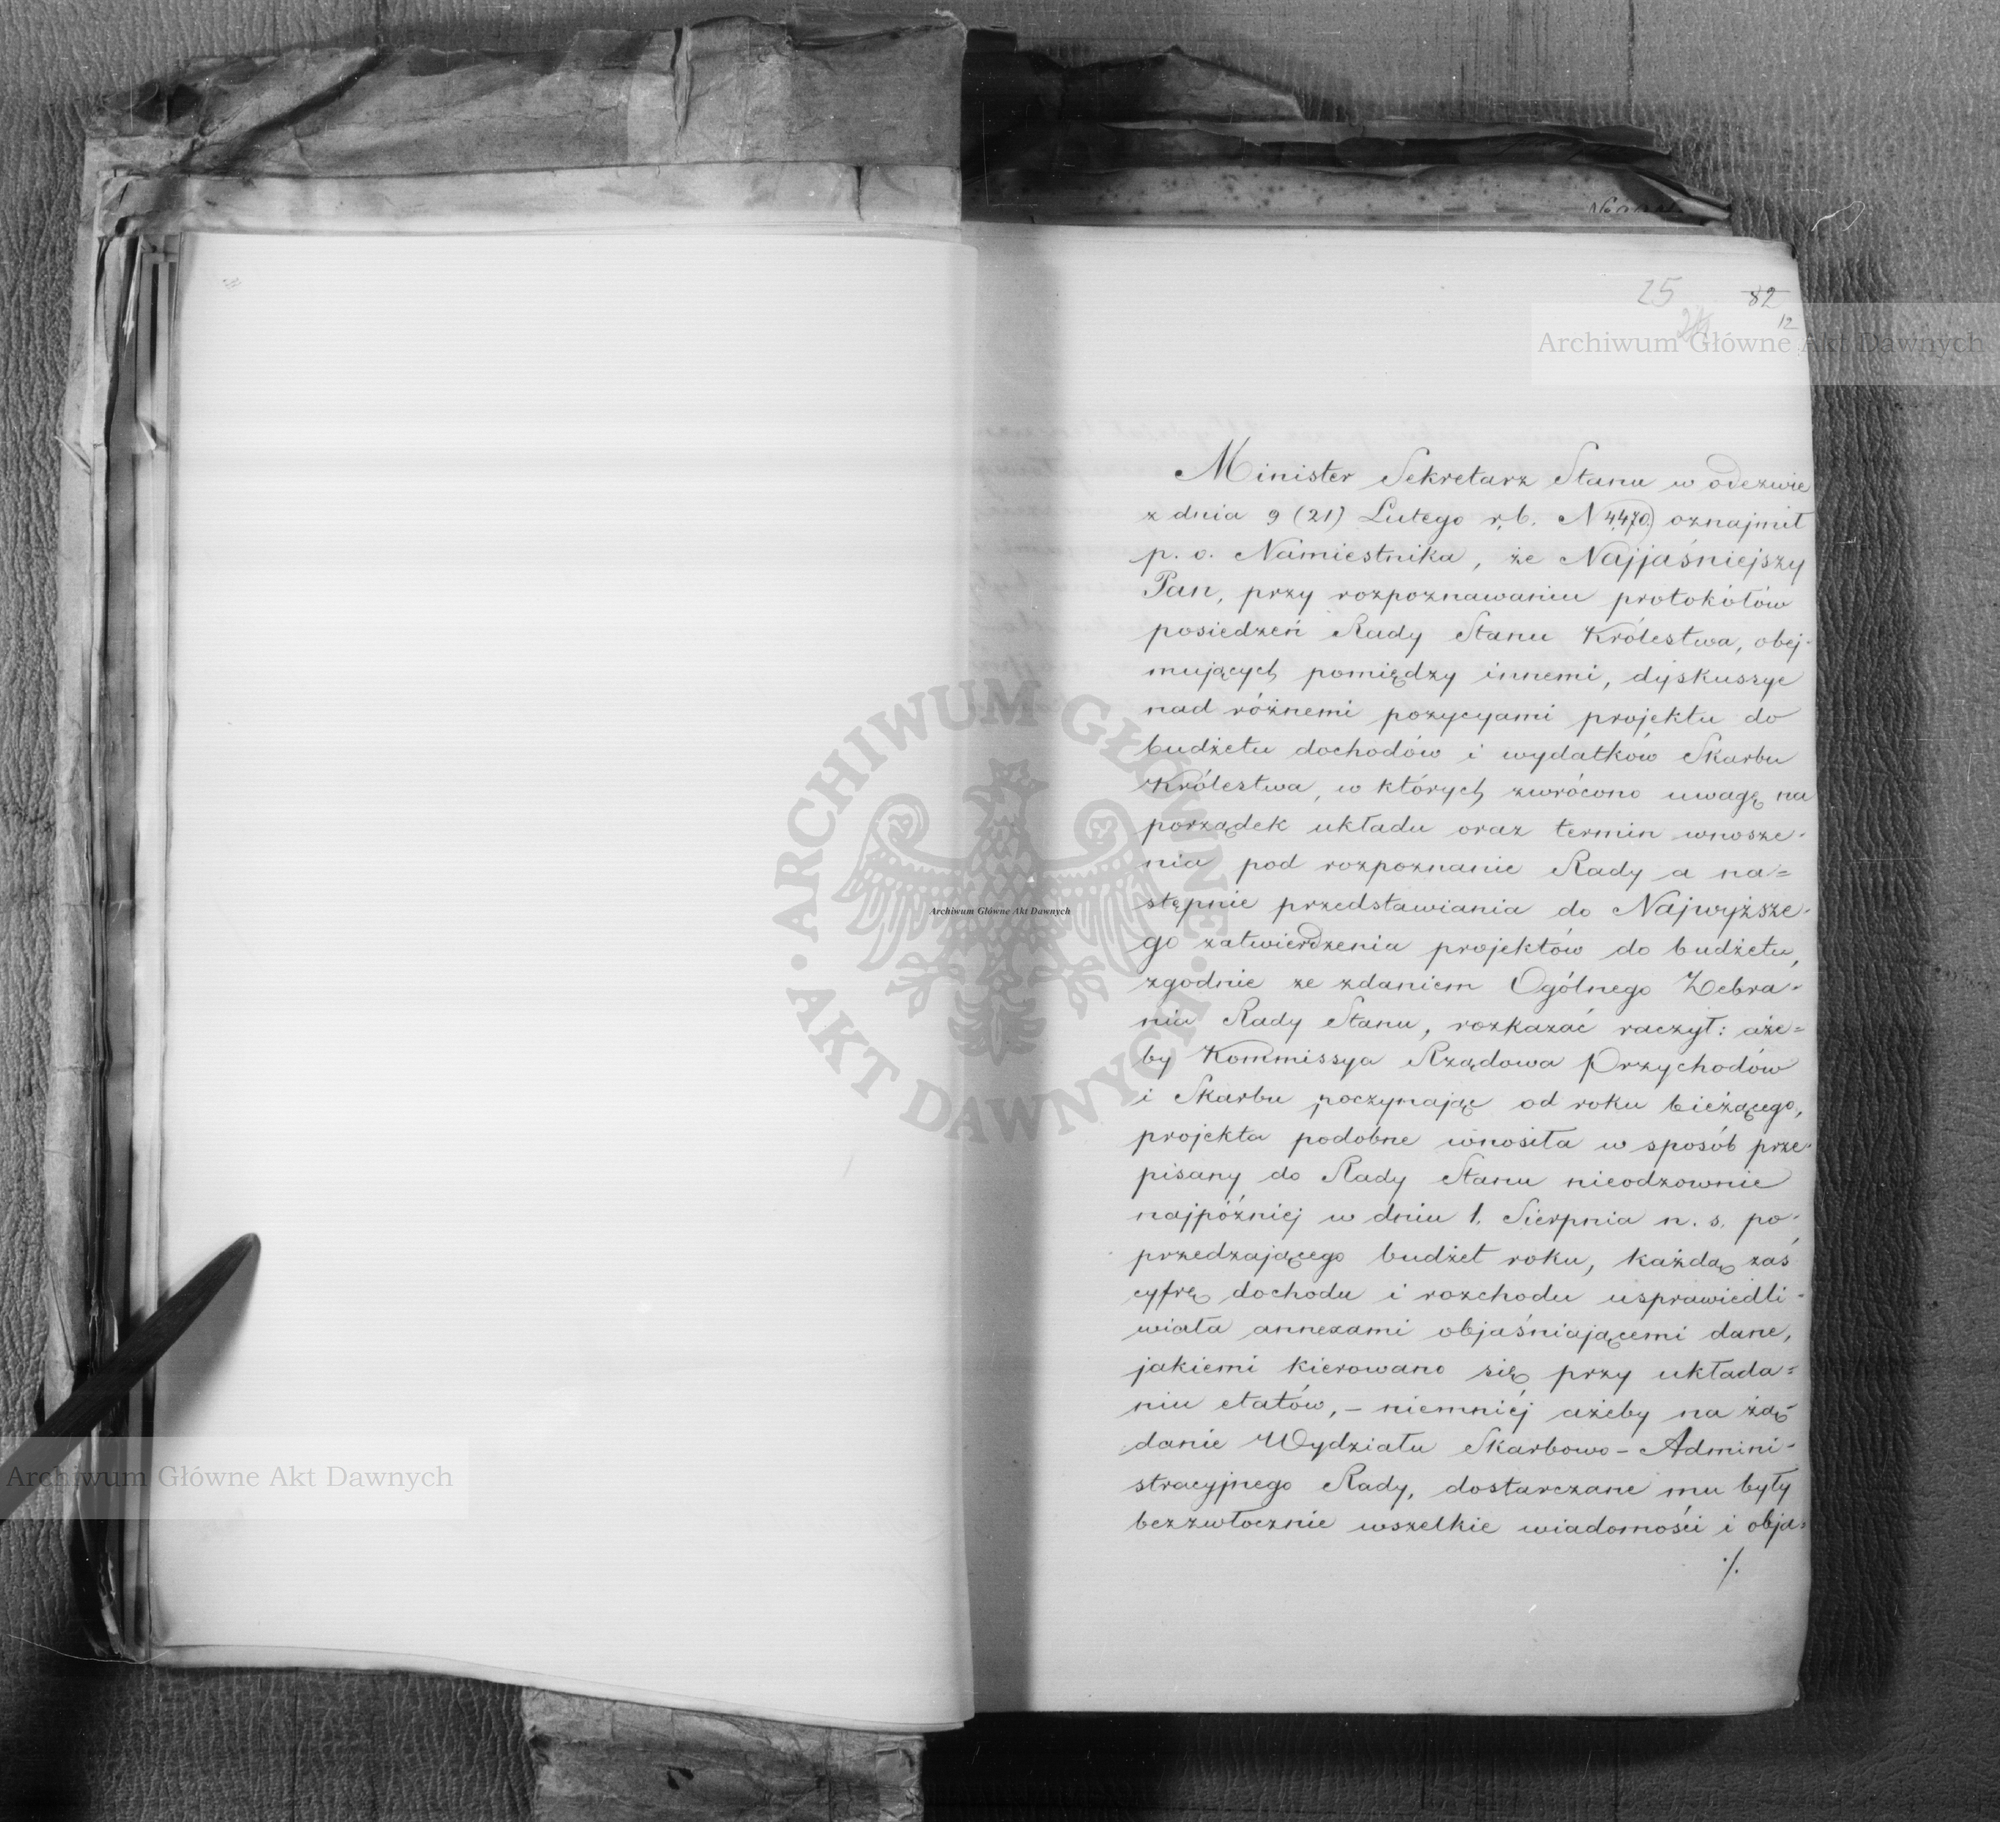 25 82
12
Archiwum Główne Akt Dawnych
Minister Sekretarz Stanu w odezwie
z dnia 9 (21) Lutego r. b. N 4470) oznajmił
p. o. Namiestnika, że Najjaśniejszy
Pan, przy rozpoznawaniu protokółów
posiedzeń Rady Stanu Królestwa, obej-
mujących pomiędzy innemi, dyskuszye
nad różnemi pozycyami projektu do
budżetu dochodów i wydatków Skarbu
Królestwa, w których zwrócono uwagę na
porządek układu oraz termin wnosze-
nia pod rozpoznanie Rady a na=
stępnie przedstawiania do Najwyższe-
go zatwierdzenia projektów do budżetu,
zgodnie ze zdaniem Ogólnego Zebra-
nia Rady Stanu, rozkazać raczył: aże=
by Kommissya Rządowa Przychodów
i Skarbu poczynając od roku bieżącego,
projekta podobne wnosiła w sposób prze-
pisany do Rady Stanu nieodzownie
najpóźniej w dniu 1. Sierpnia n. s. po-
przedzającego budżet roku, każdą zaś
cyfrę dochodu i rozchodu usprawiedli-
wiała annexami objaśniającemi dane,
jakiemi kierowano się przy układa=
niu etatów, – niemniéj ażeby na żą-
danie Wydziału Skarbowo-Admini-
stracyjnego Rady, dostarczane mu były
bezzwłocznie wszelkie wiadomości i obja=
./.
ARCHIWUM GŁÓWNE AKT DAWNYCH
Archiwum Główne Akt Dawnych
Archiwum Główne Akt Dawnych